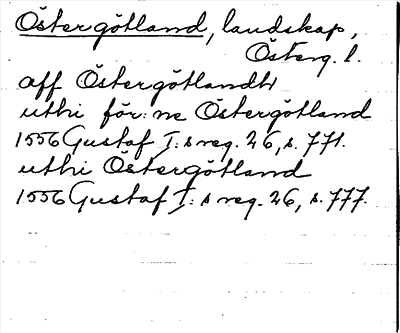 Östergötland, landskap,
Österg. l.
aff Östergötlandh
uthi för:ne Östergötland
1556 Gustaf I:s reg. 26, s. 771.
uthi Östergötland
1556 Gustaf I:s reg. 26, s. 777.